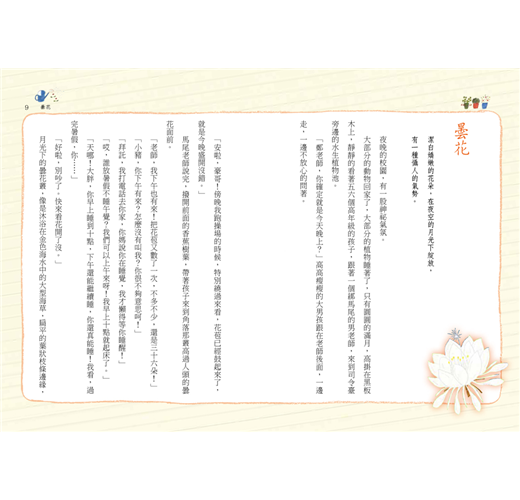 曇花
潔白嬌嫩的花朵，在夜空的月光下綻放，
有一種懾人的氣勢。
夜晚的校園，有一股神祕氣氛。
大部分的動物回家了，大部分的植物睡著了，只有圓圓的滿月，高掛在黑板
木上，靜靜的看著五六個高年級的孩子，跟著一個綁馬尾的男老師，來到司令臺
旁邊的水生植物池。
「鄭老師，你確定就是今天晚上？」高高瘦瘦的大男孩跟在老師後面，一邊
走，一邊不放心的問著。
「安啦，豪哥！傍晚我跑操場的時候，特別繞過來看，花苞已經鼓起來了，
就是今晚盛開沒錯。」
馬尾老師說完，撥開前面的香蕉樹葉，帶著孩子來到角落那叢高過人頭的曇
花面前。
「老師，我下午也有來！把花苞又數了一次，不多不少，還是三十六朵！」
「小豬，你下午有來？怎麼沒有叫我？你很不夠意思呵！」
「拜託，我打電話去你家，你媽說你在睡覺，我才懶得等你睡醒！」
「哎，誰放暑假不睡午覺？我們可以上午來呀！我早上十點就起床了。」
「天哪！大胖，你早上睡到十點，下午還能繼續睡，你還真能睡！我看，過
完暑假，你……」
「好啦，別吵了。快來看花開了沒。」
月光下的曇花叢，像是沐浴在金色海水中的大型海草，扁平的葉狀枝條邊緣，
9
曇花